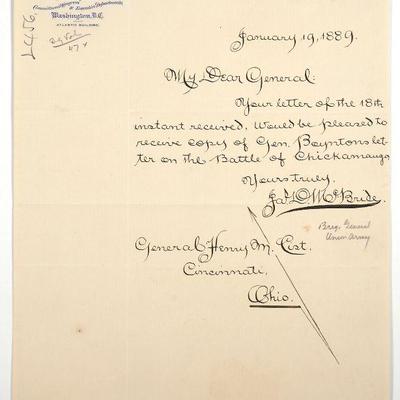 Washington, D.C.
ATLANTIC BUILDING.
January 19, 1889.
My Dear General:
Your letter of the 18th
instant received. Would be pleased to
receive copy of Gen. Boyntons let-
ter on the Battle of Chickamauga
Yours truly,
Jas. D. McBride.
Brig. General
Union Army
General Henry M. Cist.
Cincinnati,
Ohio.